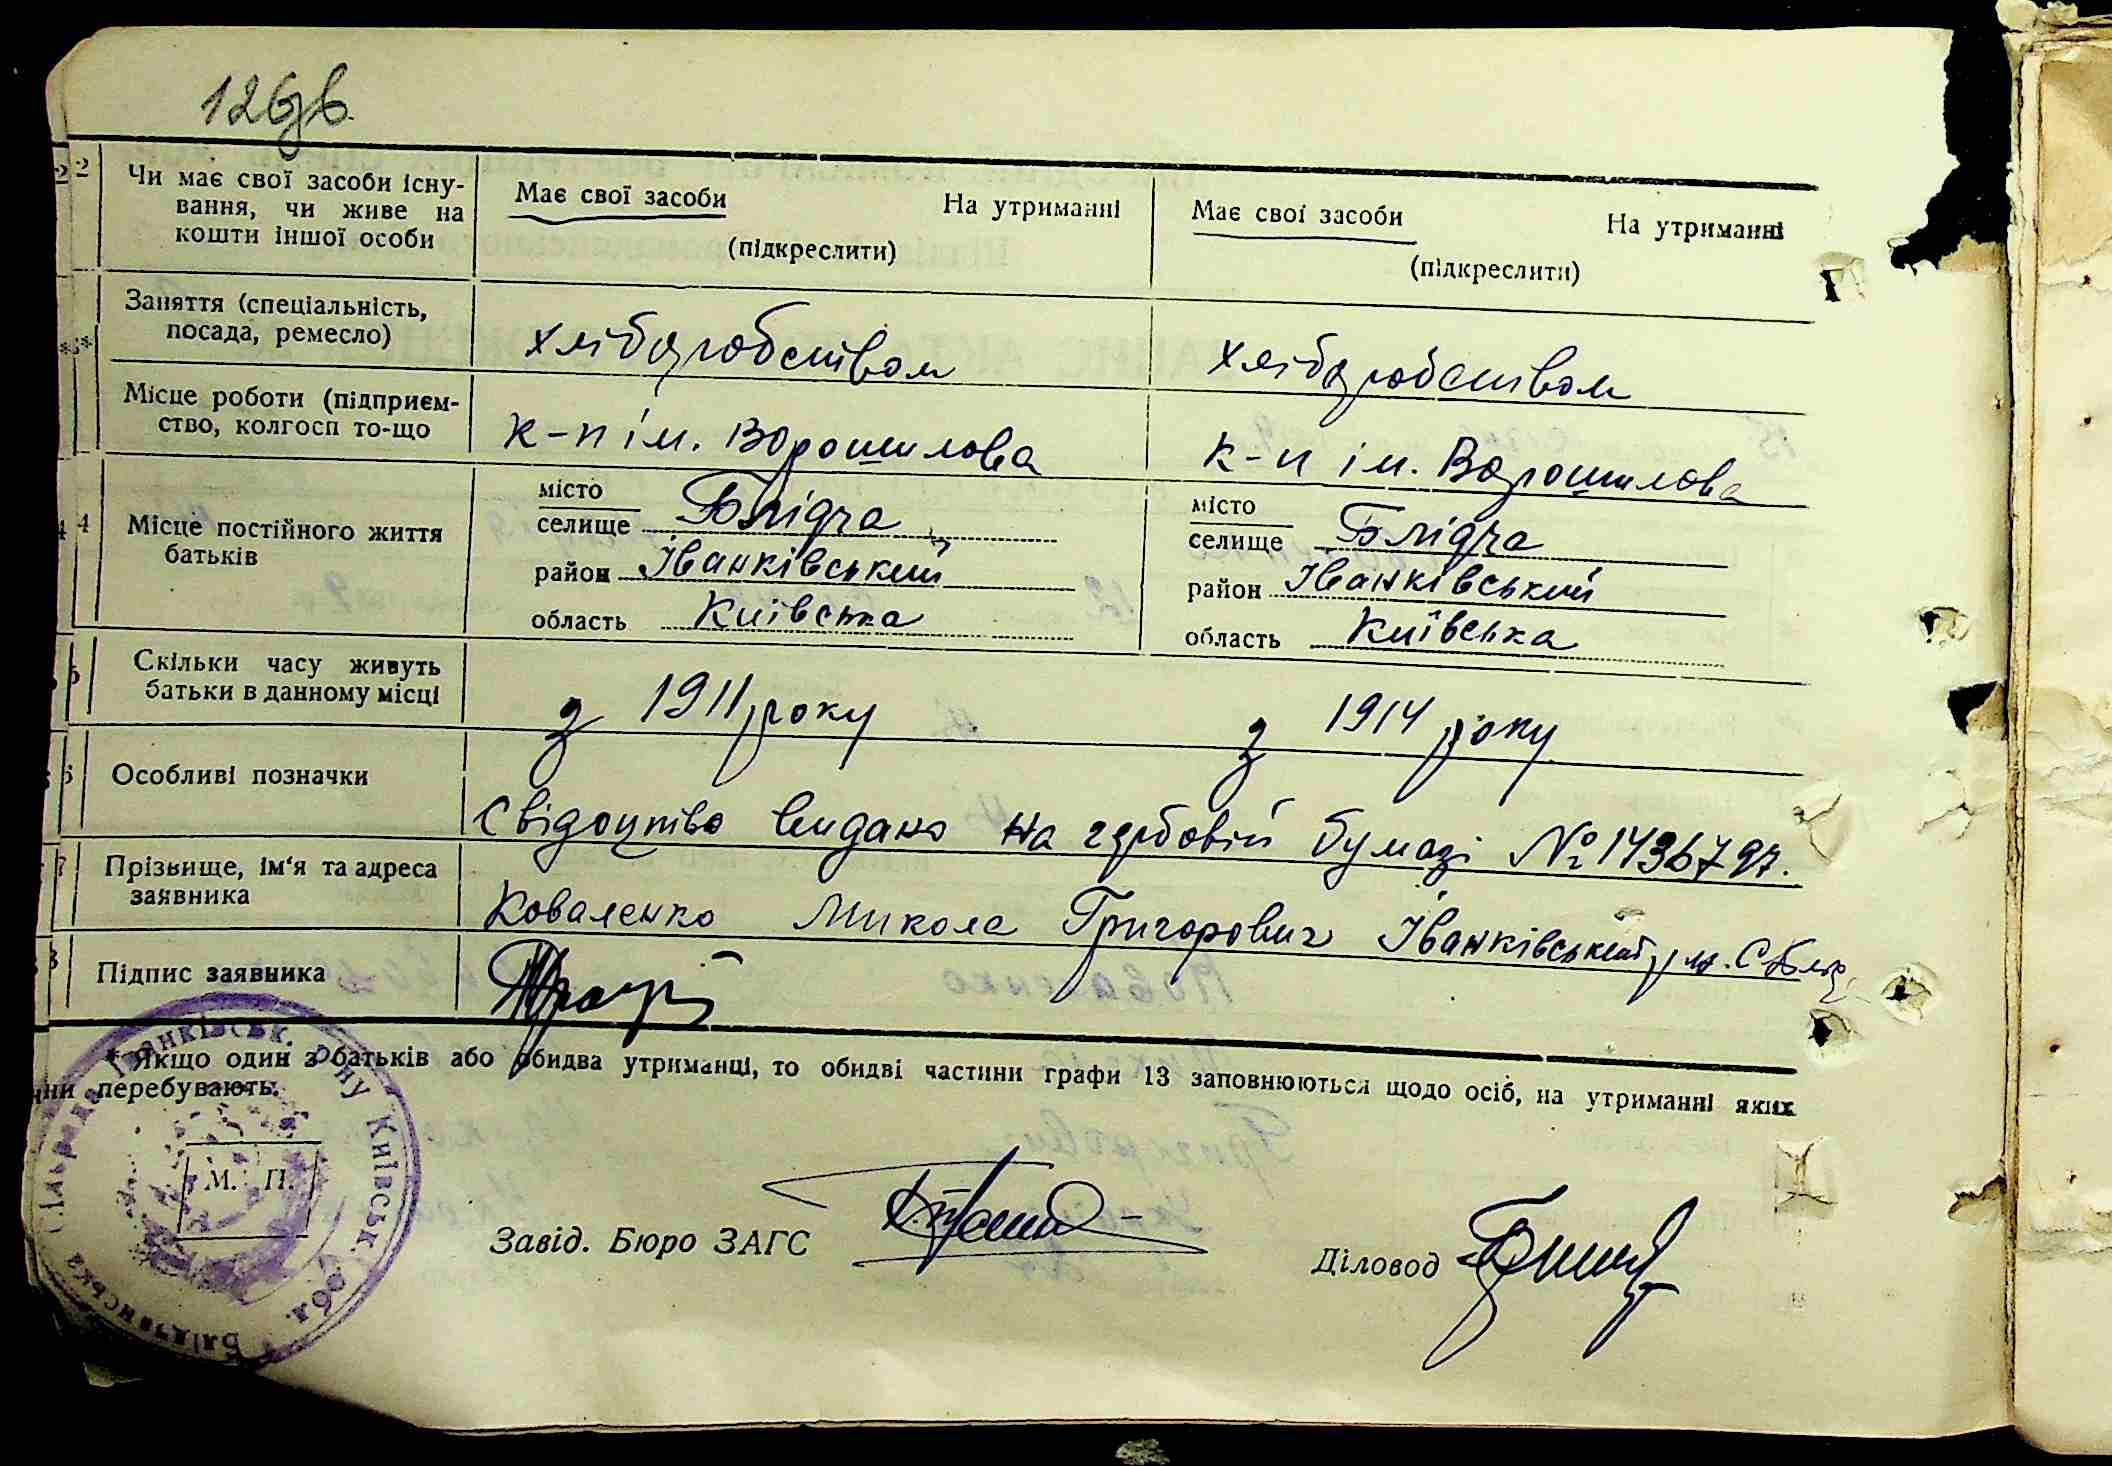 126зв.
2 2 Чи має свої засоби існу-
вання, чи живе на
кошти іншої особи
Має свої засоби На утриманні
(підкреслити)
Має свої засоби На утриманні
(підкреслити)
Заняття (спеціальність,
посада, ремесло)
хліборобством
хліборобством
Місце роботи (підприєм-
ство, колгосп то-що
к-п ім. Ворошилова
к-п ім. Ворошилова
4 4 Місце постійного життя
батьків
місто
селище Блідча
район Іванківський
область Київська
місто
селище Блідча
район Іванківський
область Київська
5 Скільки часу живуть
батьки в данному місці
з 1911 року
з 1914 року
6 Особливі позначки
Свідоцтво видано на гербовій бумазі №
7 Прізвище, ім'я та адреса
заявника
Коваленко Микола Григорович Іванківський р-н. С
8 Підпис заявника
* Якщо один з батьків або обидва утриманці, то обидві частини графи 13 заповнюються щодо осіб, на утриманні яких
перебувають.
М. П.
Іванківськ. р-ну Київськ. обл.
Блідчанська Сільрада
Завід. Бюро ЗАГС
Діловод